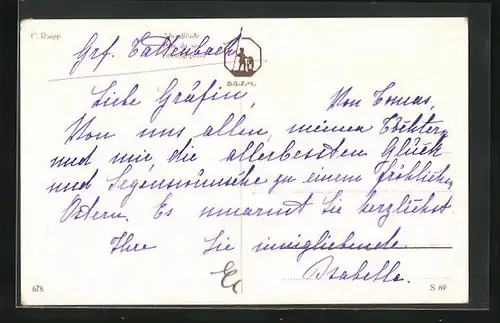 C. Rupp
Abendfriede
Grf. Tattenbach
O.G.Z.-L.
Liebe Gräfin,
Von Tomas,
Von uns allen, meinen Töchtern
und mir, die allerbessten Glück
und Segenswünsche zu einem fröhlichen
Ostern. Es umarmt Sie herzlichst
Ihre Sie innigliebende
Isabella.
678
S 69